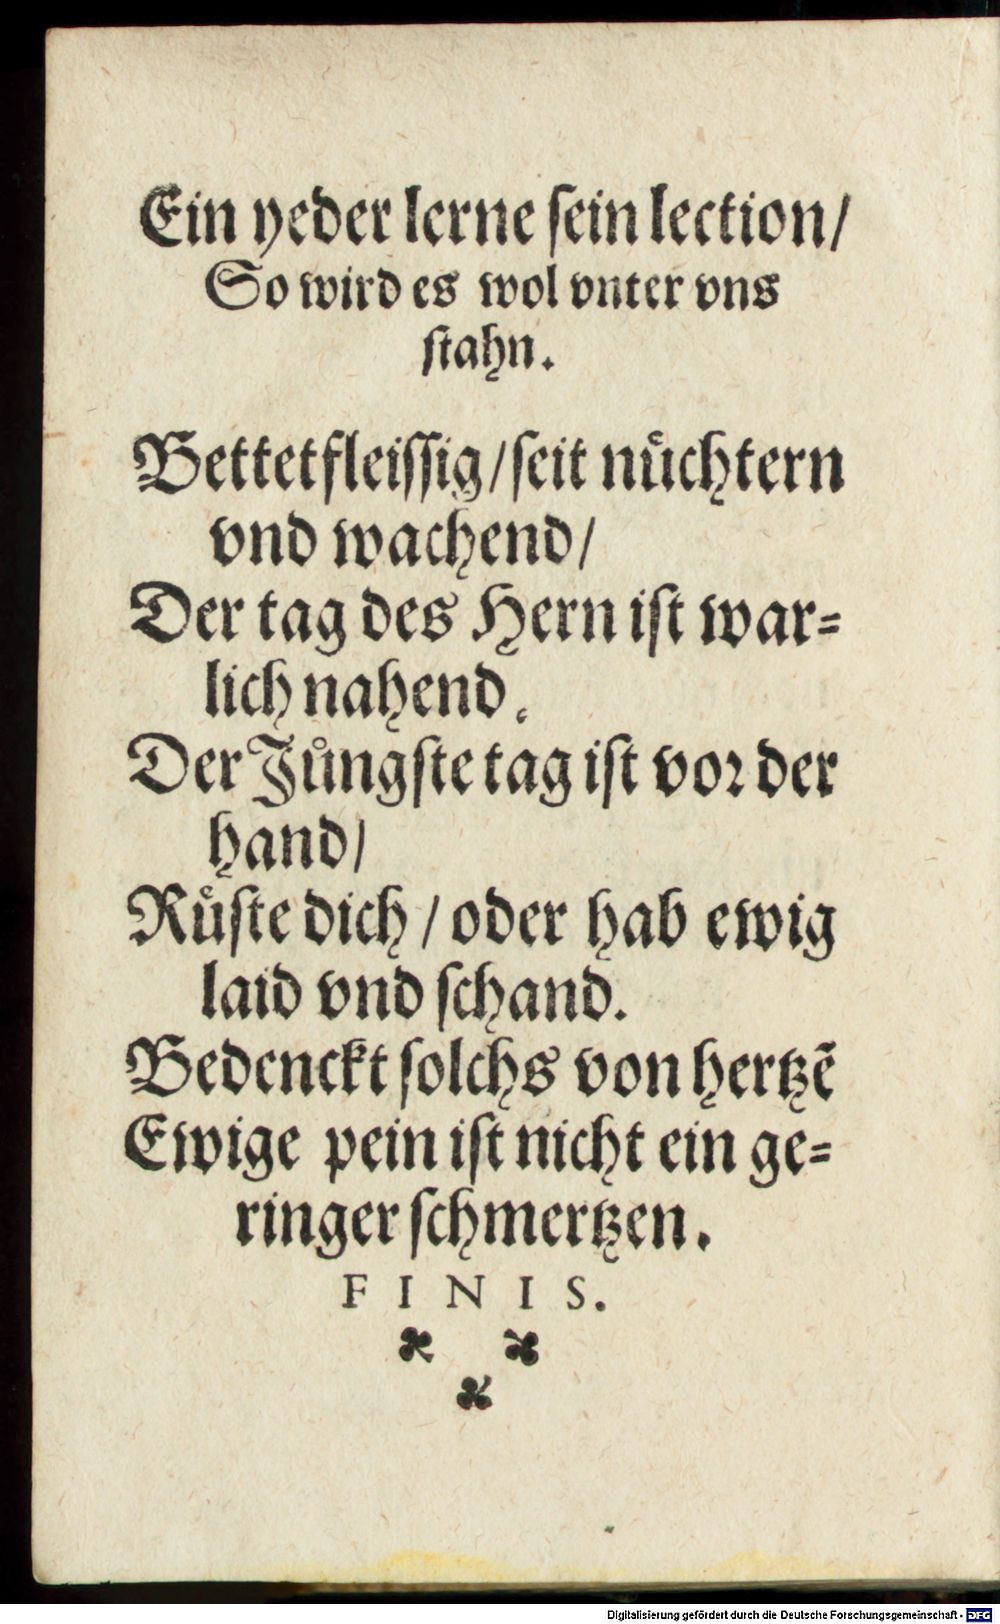 Ein yeder lerne ſein lection/
So wird es wol vnter vns
ſtahn.
Bettet fleiſſig/ ſeit nuͤchtern
vnd wachend/
Der tag des Hern iſt war⸗
lich nahend.
Der Juͤngſte tag iſt voꝛ der
hand/
Ruͤſte dich / oder hab ewig
laid vnd ſchand.
Bedenckt ſolchs von hertzẽ
Ewige pein iſt nicht ein ge⸗
ringer ſchmertzen.
F I N I S.
Digitalisierung gefördert durch die Deutsche Forschungsgemeinschaft - DFG